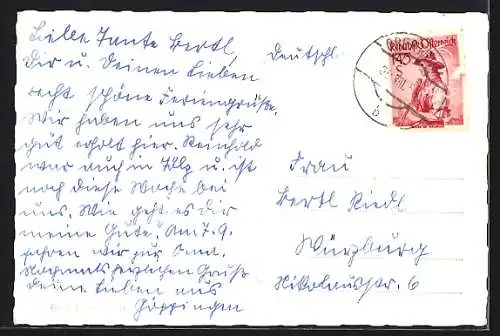 Liebe Tante Bertl,
Dir u. Deinen Lieben
recht schöne Feriengrüße.
Wir haben uns sehr
gut erholt hier. Reinhold
war auch in u. ist
noch diese Woche bei
uns. Wie geht es Dir
meine Gute? Am 7.9.
fahren wir zur Oma.
Nochmals herzlichen Gruß
deine Lieben aus
Göppingen
Deutschl.
Republik Österreich
1.45
S
b
Frau
Bertl Riedl
Würzburg
Nikolausstr. 6